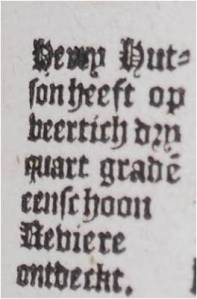 Henry Hut⸗
ſon heeft op
veertich dry
quart gradē
eenſchoon
Reviere
ontdeckt.